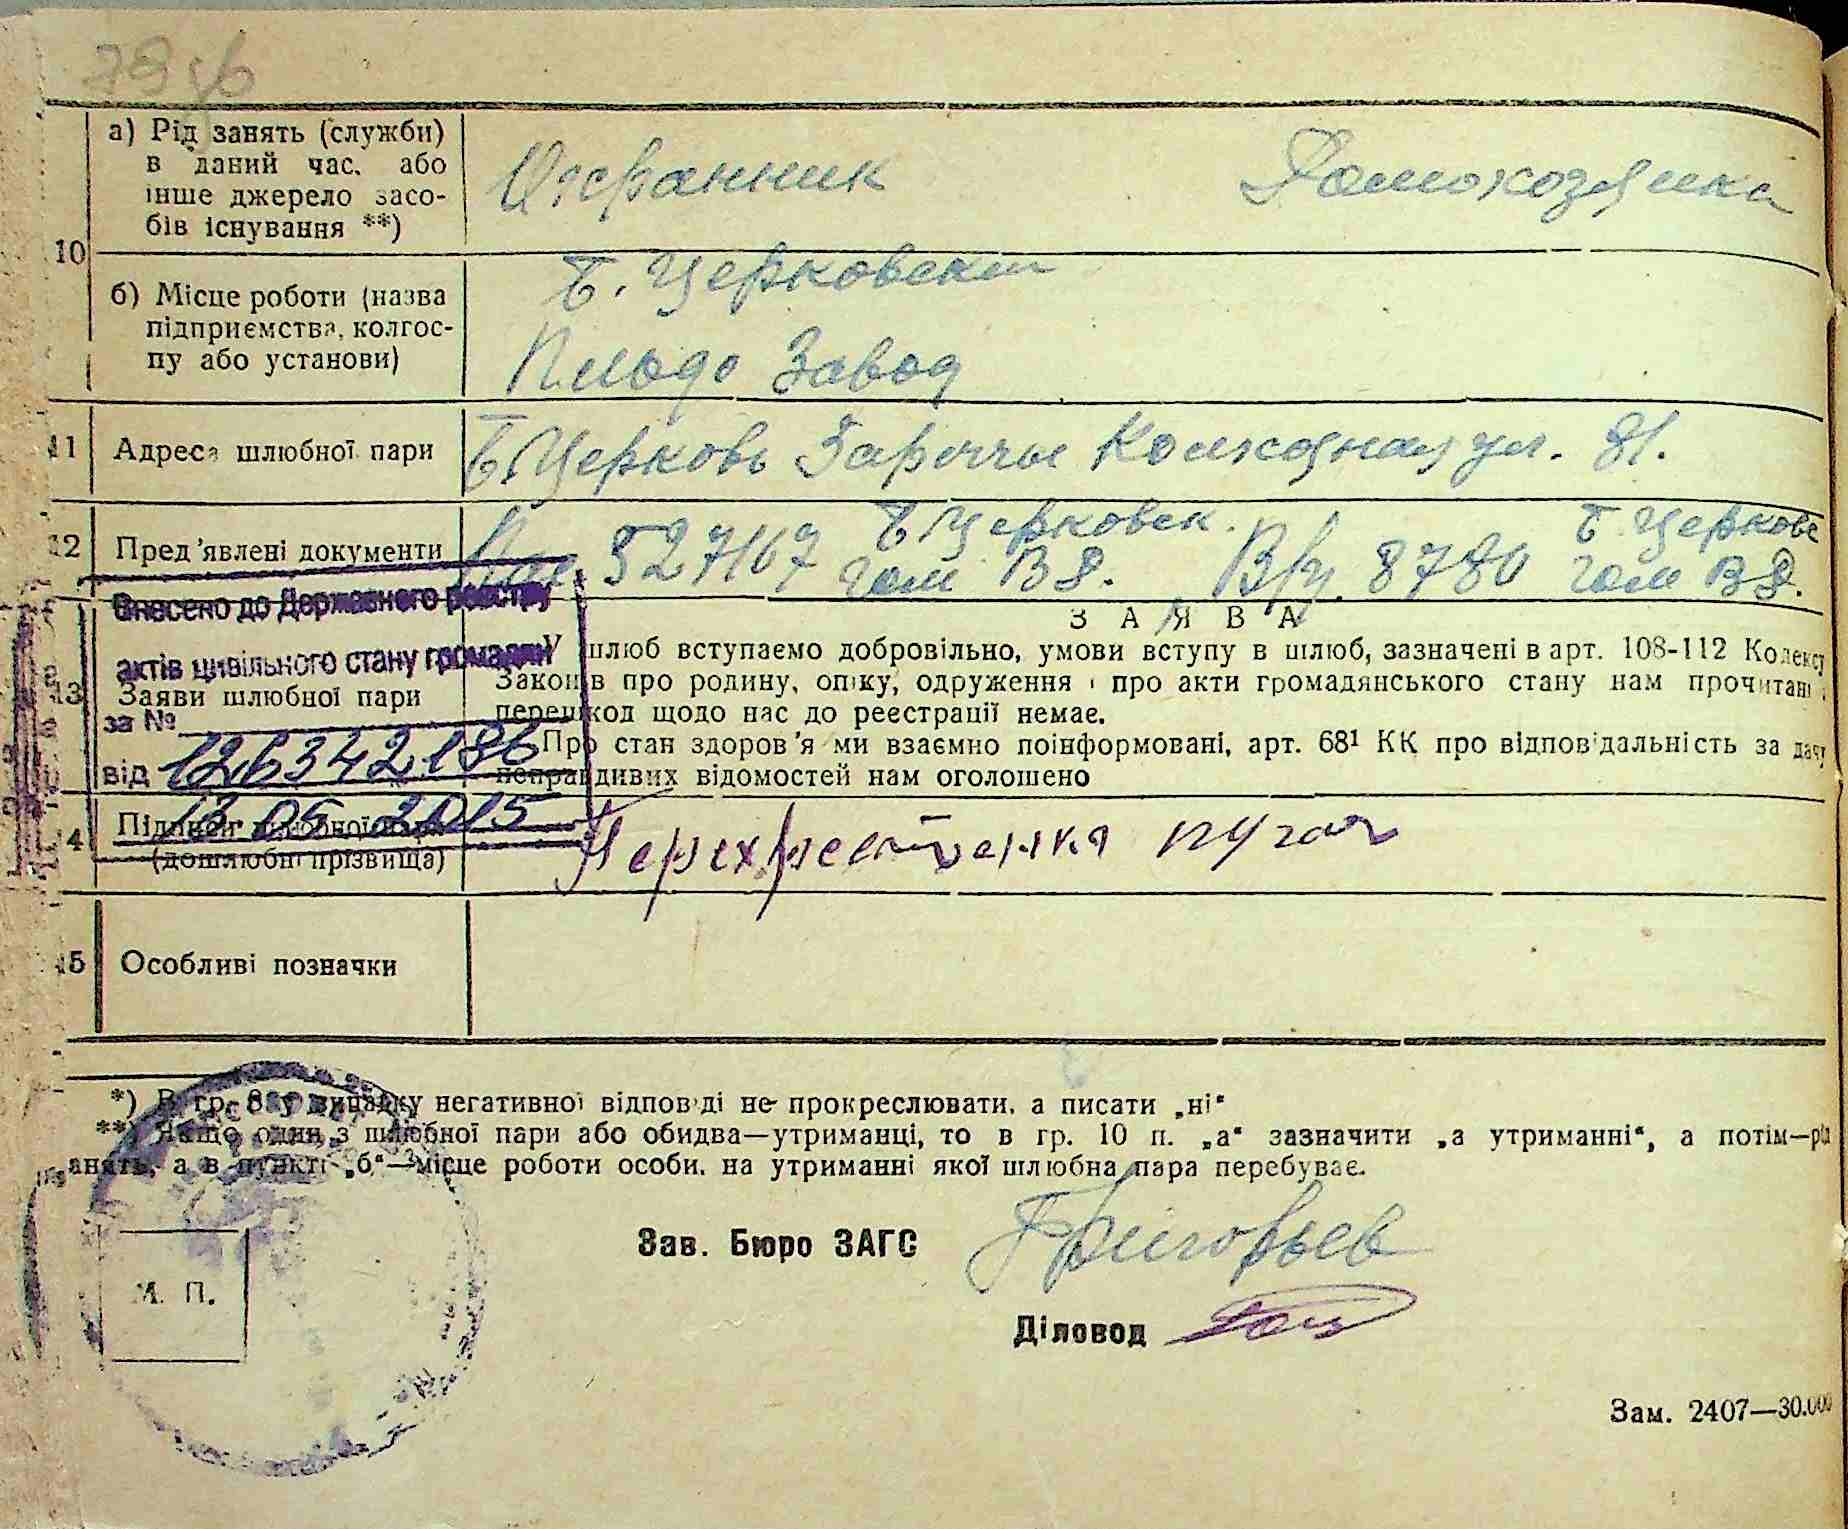 10
а) Рід занять (служби)
в даний час, або
інше джерело засо-
бів існування **)
Охранник Домохозяйка
б) Місце роботи (назва
підприємства, колгос-
пу або установи)
Б. Церковский
Завод
11 Адреса шлюбної пари
Б Церковь Заречье ул. 81.
12 Пред'явлені документи
Пас 527167 Б Церковск. гом В 8. Вр 8780 Б. Церковс гом В 8.
Внесено до Державного реєстру
актів цивільного стану громадян
за №
від 126342186
13.05.2015
13 Заяви шлюбної пари
З А Я В А
У шлюб вступаємо добровільно, умови вступу в шлюб, зазначені в арт. 108-112 Кодексу
Законів про родину, опіку, одруження і про акти громадянського стану нам прочитані і
перешкод щодо нас до реєстрації немає.
Про стан здоров'я ми взаємно поінформовані, арт. 68¹ КК про відповідальність за дачу
неправдивих відомостей нам оголошено
14 Підписи шлюбної пари
(дошлюбні прізвища)
15 Особливі позначки
*) В гр. 8 у випадку негативної відповіді не прокреслювати, а писати „ні“
**) Якщо один з шлюбної пари або обидва—утриманці, то в гр. 10 п. „а“ зазначити „а утриманні“, а потім—рід
занять, а в пункті „б“—місце роботи особи, на утриманні якої шлюбна пара перебуває.
Зав. Бюро ЗАГС Григорьев
М. П.
Діловод
Зам. 2407—30.000